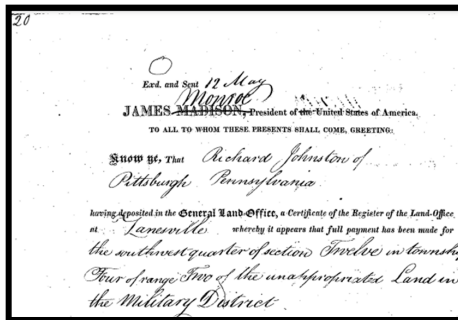 20
Exd. and Sent 12 May
Monroe
JAMES MADISON, President of the United States of America.
TO ALL TO WHOM THESE PRESENTS SHALL COME, GREETING:
Know ye, That Richard Johnston of
Pittsburgh Pennsylvania
having deposited in the General Land-Office, a Certificate of the Register of the Land-Office
at Zanesville whereby it appears that full payment has been made for
the southwest quarter of section Twelve in township
Four of range Two of the unappropriated Land in
the Military District